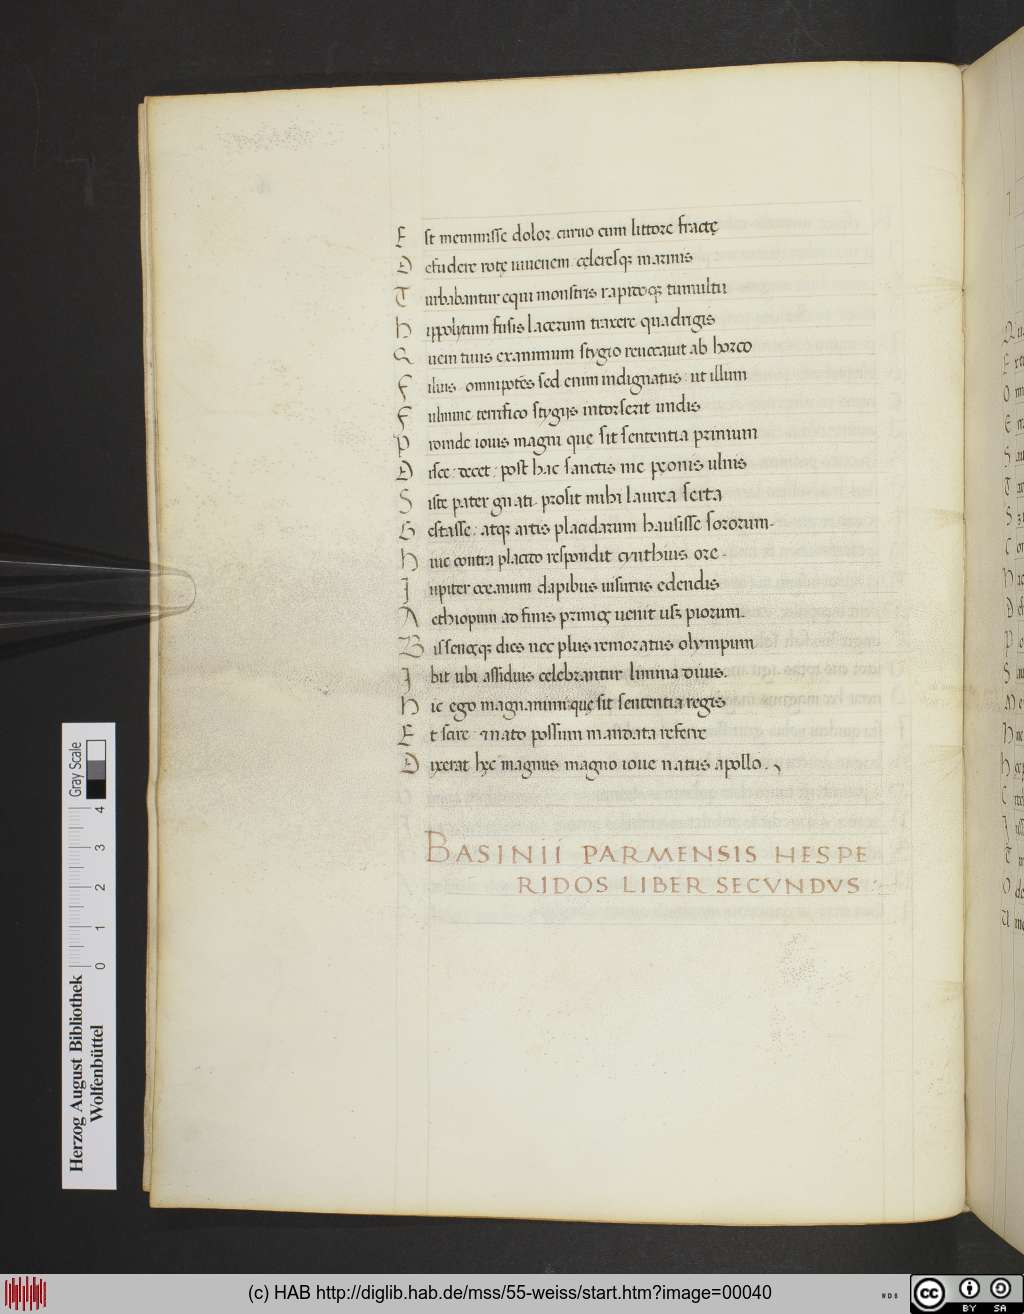 E st meminisse dolor. curuo cum littore fractę
D efudere rotę iuuenem. celeresq; marinis
T urbabantur equi monstris rapidoq; tumultu
H ippolytum fusis lacerum traxere quadrigis
Q uem tuus exanimum stygio reuocauit ab horco
F ilius. omnipotēs sed enim indignatus. ut illum
F ulmine terrifico stygijs intorserit undis
P roinde iouis magni que sit sententia primum
D isce. decet. post hac sanctis me pęonis ulnis
S iste pater gnati. prosit mihi laurea serta
G estasse. atq; artis placidarum hausisse sororum.
H uic contra placido respondit cynthius ore.
I upiter oceanum dapibus uisurus edendis
A ethiopum ad finis primoq; uenit usq; piorum.
B issenosq; dies nec plus remoratus olympum
I bit ubi assiduis celebrantur limina diuis.
H ic ego magnanimi quę sit sententia regis
E t scire. & nato possum mandata referre
D ixerat hęc magnus magno ioue natus apollo.
BASINII PARMENSIS HESPE
RIDOS LIBER SECVNDVS
Gray Scale
0 1 2 3 4
Herzog August Bibliothek
Wolfenbüttel
(c) HAB http://diglib.hab.de/mss/55-weiss/start.htm?image=00040
cc BY SA